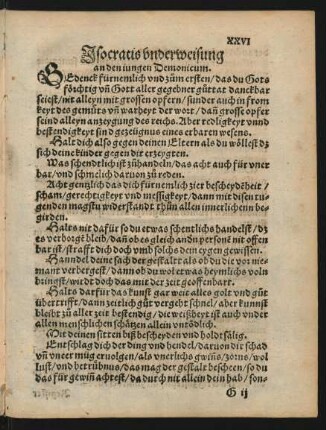 XXVI
Isocratis vnderweisung
an den iungen Demonicum.
BEdenck fürnemlich vnd zům ersten / das du Gots
förchtig vñ Gott aller gegebner gůttat danckbar
seiest / nit alleyn mit grossen opfern / sunder auch in from
keyt des gemüts vñ warheyt der wort / dañ grosse opfer
seind alleyn anzeygung des reichs. Aber redligkeyt vnnd
bestendigkeyt sin gezeügnus eines erbaren wesens.
Halt dich also gegen deinen Eltern als du wöllest dz
sich deine kinder gegen dir erzeygten.
Was schendtlich ist zůhandeln / das acht auch für vner
bar / vnd schmelich daruon zů reden.
Acht gentzlich das dich fürnemlich zier bescheydēheit /
scham / gerechtigkeyt vnd messigkeyt / dann mit disen tu-
genden magstu widerstandt thůn allen innerlichenn be
girden.
Halts nit dafür so du etwas schentlichs handelst / dz
es verborgē bleib / dañ ob es gleich andn personē nit offen
bar ist / strafft dich doch vmb solchs dein eygen gewissen.
Hanndel deine sach der gestalt als ob du die vor nie-
mant verbergest / dann ob du wol etwas heymlichs voln
bringst / wirdt doch das mit der zeit geoffenbart.
Halts darfür das kunst gar weit alles golt vnd gůt
übertrifft / dann zeitlich gůt vergeht schnel / aber kunnst
bleibt zů aller zeit bestendig / die weißheyt ist auch vnder
allen menschlichen schätzen allein vntödlich.
Mit deinen sitten biß bescheyden vnd holdtsälig.
Entschlag dich der ding vnd hendel / daruon dir schad
vñ vneer müg eruolgen / als vnerlichs gwiñs / zorns / wol
lust / vnd betrübnus / das mag der gestalt bescheen / so du
das für gewiñ achtest / da durch nit allein dein hab / son-
G ij